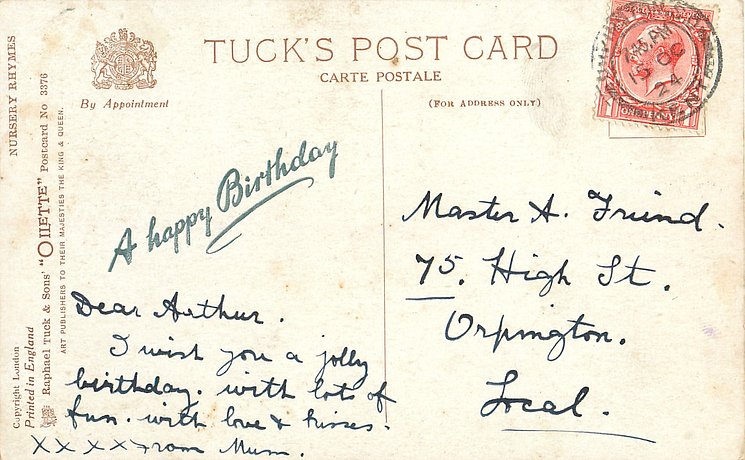 TUCK'S POST CARD
CARTE POSTALE
By Appointment
(FOR ADDRESS ONLY)
NURSERY RHYMES
Copyright London
Printed in England
Raphael Tuck & Sons' "OILETTE" Postcard No 3376
ART PUBLISHERS TO THEIR MAJESTIES THE KING & QUEEN.
A happy Birthday
Dear Arthur.
I wish you a jolly
birthday. with lots of
fun. with love & kisses.
XXXX from Mum.
Master A. Friend.
75. High St.
Orpington.
Local.
15 OC
24
KENT
ONE PENNY